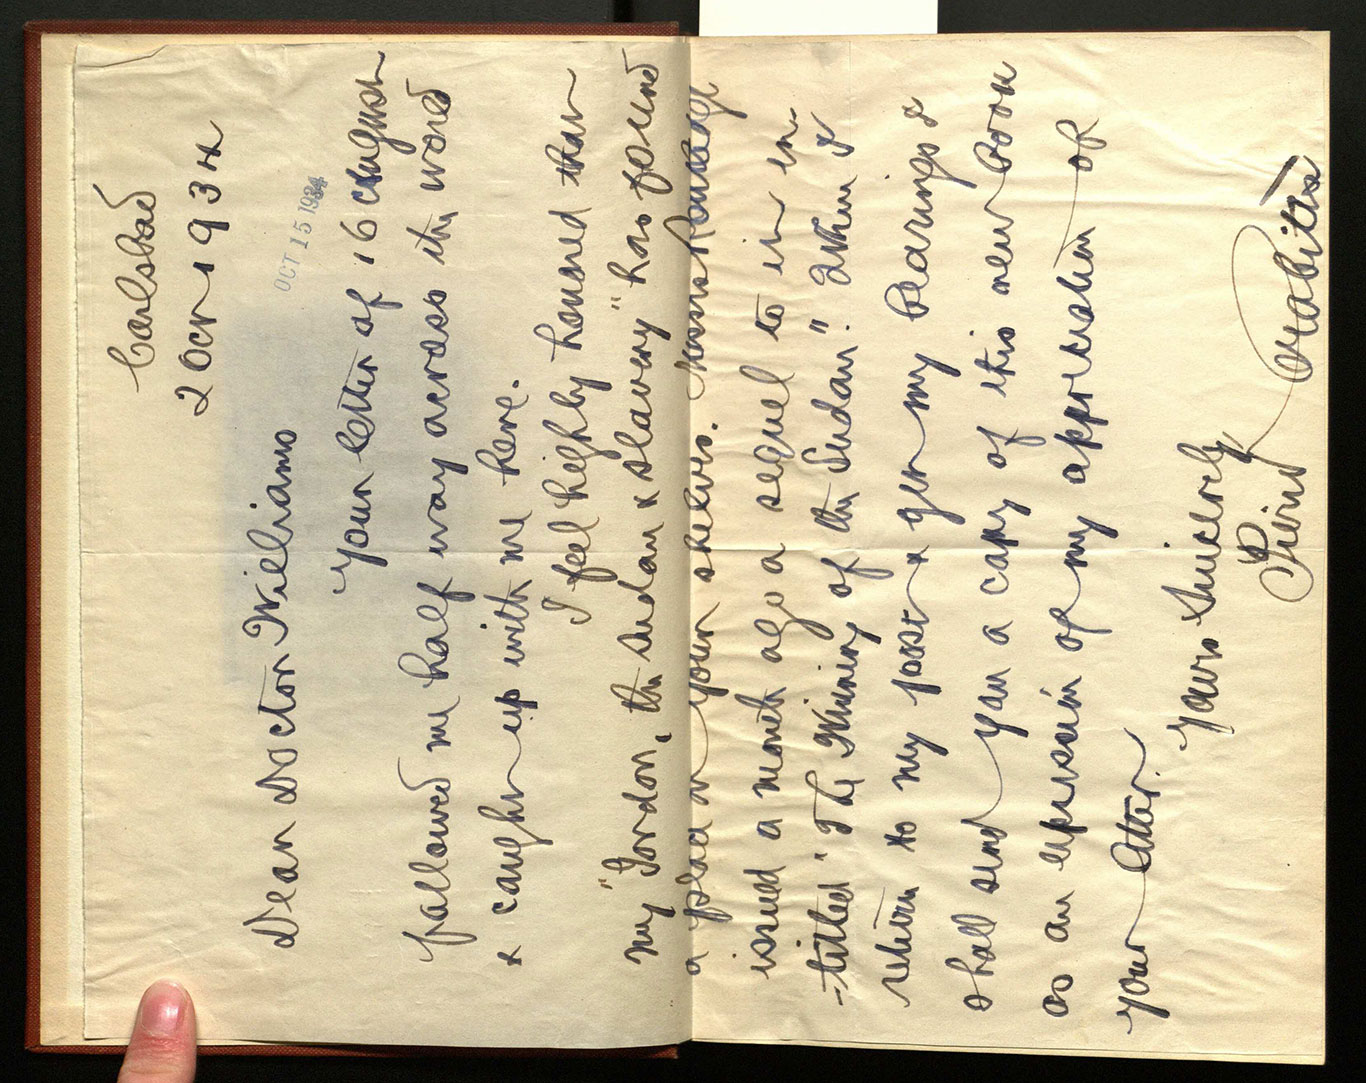 Carlsbad
2 Oct 1934
OCT 15 1934
Dear Doctor Williams
Your letter of 16 August
followed me half way across the world
& caught up with me here.
I feel highly honored that
my "Gordon, the Sudan & slavery" has found
a place on your shelves. Messrs Routledge
issued a month ago a sequel to it en-
-titled "The Winning of the Sudan." When I
return to my post & get my bearings I
shall send you a copy of this new book
as an expression of my appreciation of
your letter.
Yours Sincerely
Pierre Crabitès